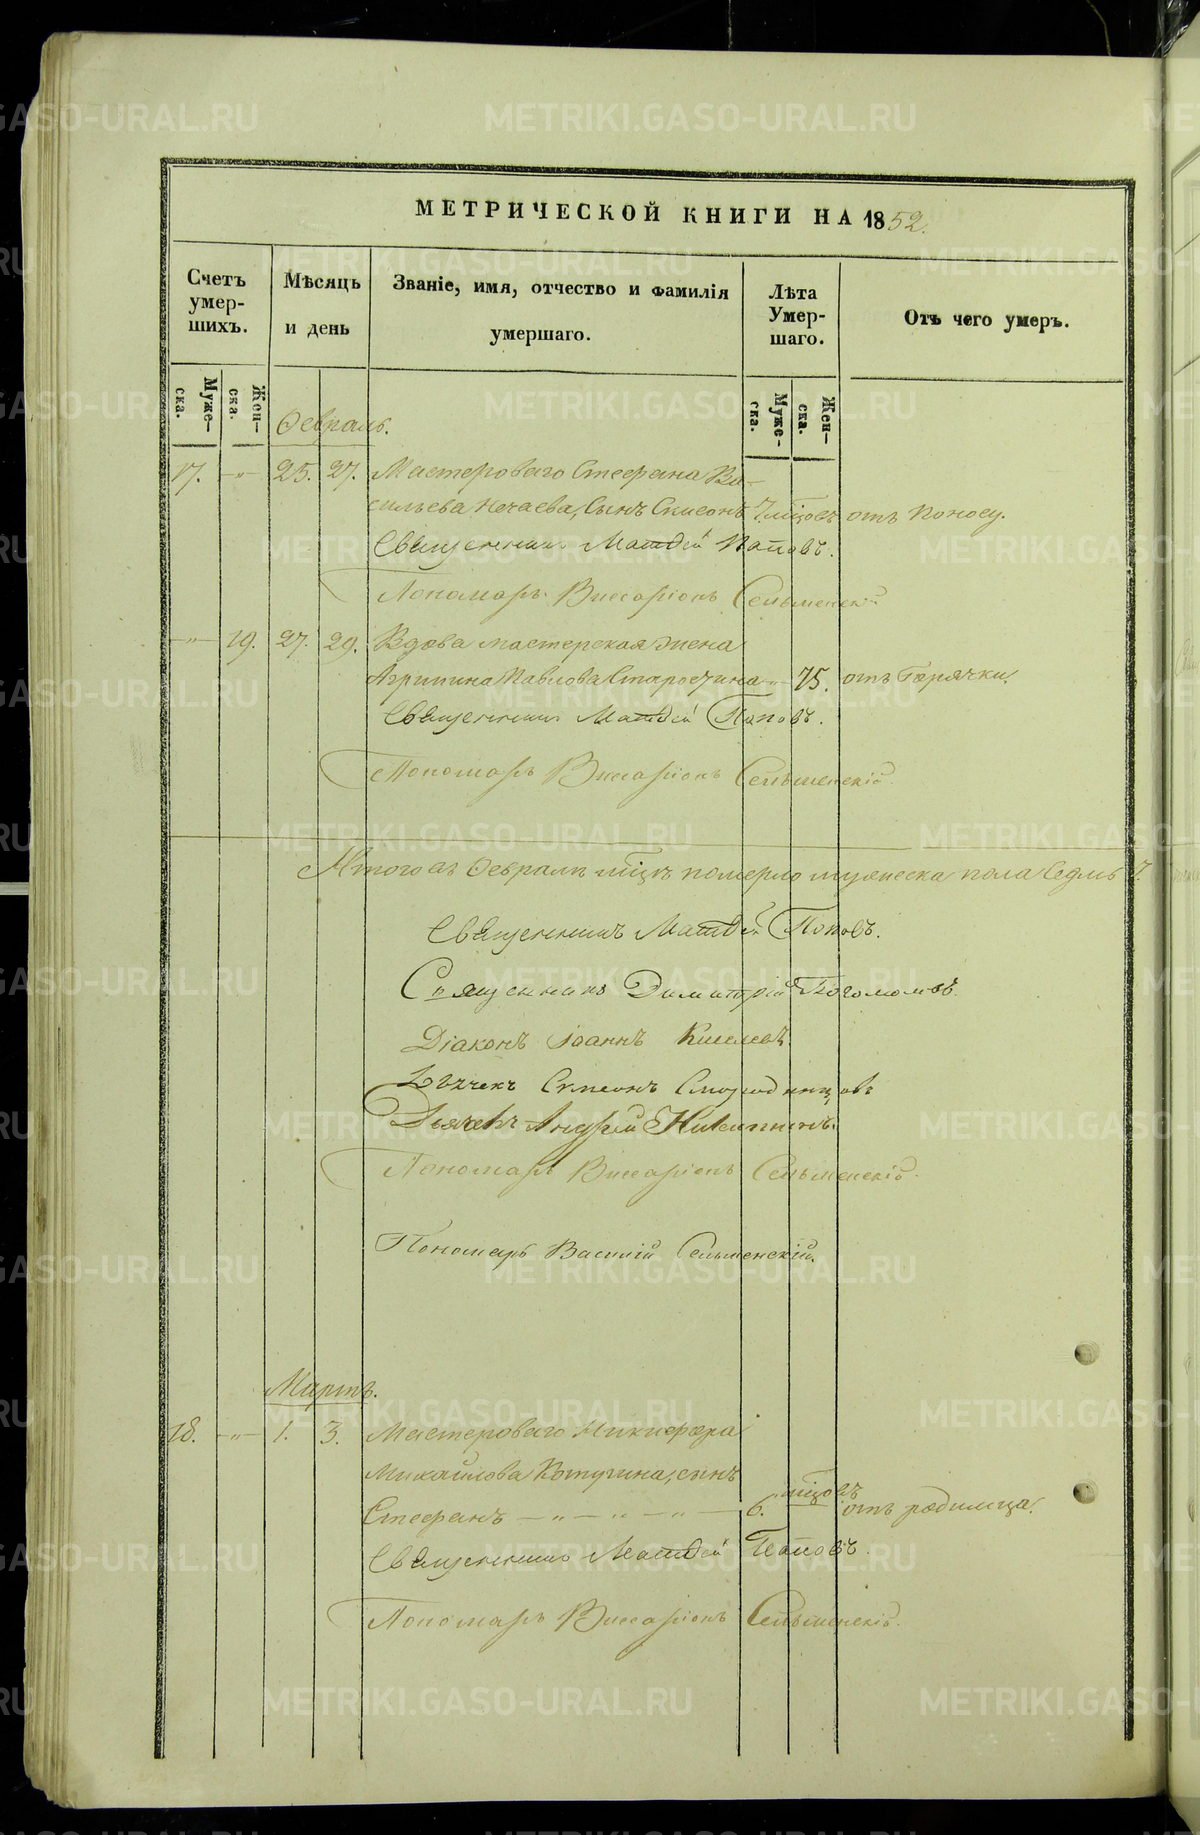 МЕТРИЧЕСКОЙ КНИГИ НА 1852.
Счетъ умер-шихъ.
Мѣсяцъ и день
Званіе, имя, отчество и фамилія умершаго.
Лѣта Умер-шаго.
Отъ чего умеръ.
Муже-ска.
Жен-ска.
Муже-ска.
Жен-ска.
Февраль.
17. -"- 25. 27. Мастероваго Стефана Ва-
сильева Нечаева, Сынъ Симеонъ 7 мцовъ отъ поносу.
Священникъ Матѳей Поповъ.
Пономарь Виссаріонъ Сельменскій
-"- 19. 27. 29. Вдова мастерская жена
Агрипина Павлова Старостина -"- 75. отъ Горячки.
Священникъ Матѳей Поповъ.
Пономарь Виссаріонъ Сельменскій
Итого въ Февралѣ мцѣ померло мужеска пола Седмь 7.
Священникъ Матѳей Поповъ.
Священникъ Димитрій Богомоловъ
Діаконъ Іоаннъ Киселевъ
Дьячекъ Симеонъ Смородинцовъ
Дьячекъ Андрей Никитинъ.
Пономарь Виссаріонъ Сельменскій
Пономарь Василій Сельменскій.
Мартъ.
18. -"- 1. 3. Мастероваго Никифора
Михайлова Котугина, сынъ
Стефанъ -"-"-"- 6. мцовъ отъ родимца.
Священникъ Матѳей Поповъ.
Пономарь Виссаріонъ Сельменскій.
METRIKI.GASO-URAL.RU